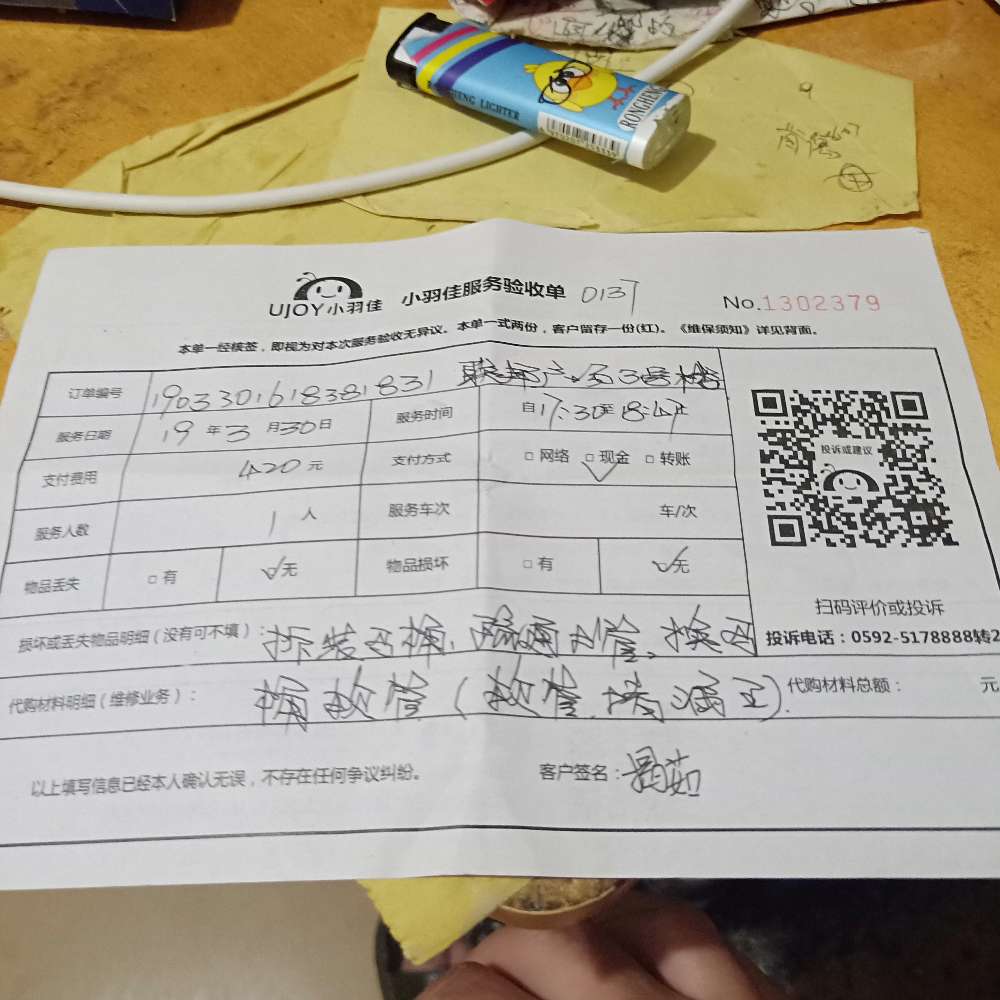 RONGHENG LIGHTER
RONGHENG
UJOY小羽佳 小羽佳服务验收单 0137
No.1302379
本单一经核签，即视为对本次服务验收无异议。本单一式两份，客户留存一份(红)。《维保须知》详见背面。
订单编号 1903301618381831
服务日期 19年3月30日 服务时间 自17:30至18:47止
支付费用 420元 支付方式 □网络 □现金 √ □转账
投诉或建议
服务人数 1人 服务车次 车/次
物品丢失 □有 √无 物品损坏 □有 √无
扫码评价或投诉
投诉电话：0592-5178888转2
损坏或丢失物品明细（没有可不填）：拆装马桶，疏通主管，换马
代购材料明细（维修业务）：桶软管（软管 漏 ）. 代购材料总额： 元
以上填写信息已经本人确认无误，不存在任何争议纠纷。 客户签名：